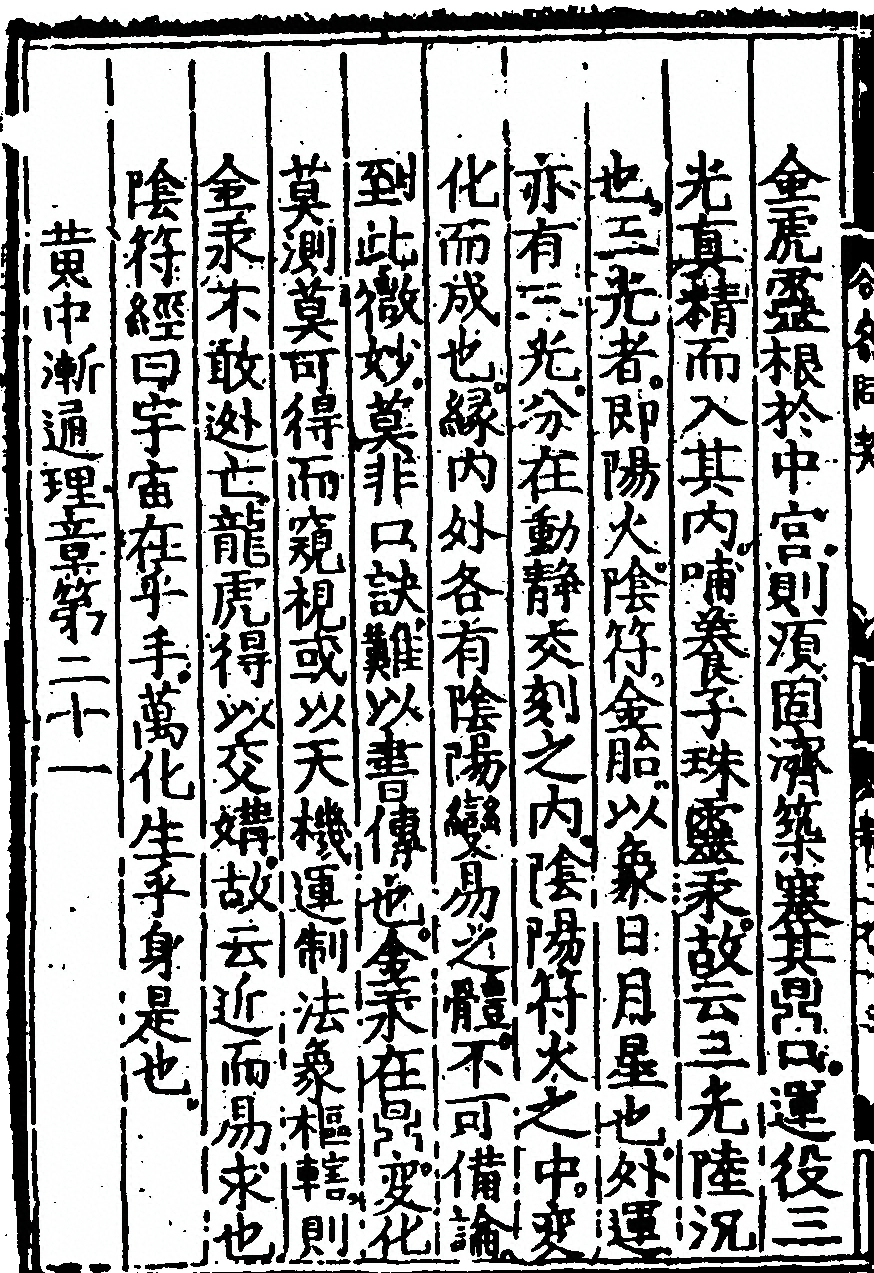 金虎靈根於中宮則須固濟築塞其鼎口運役三
光真精而入其內哺養子珠靈汞故云三光陸況
也三光者即陽火陰符金胎以象日月星也外運
亦有三光分在動靜爻刻之內陰陽符火之中變
化而成也緣內外各有陰陽變易之體不可備論
到此微妙莫非口訣難以書傳也金汞在鼎變化
莫測莫可得而窺視或以天機運制法象樞轄則
金汞不敢逃亡龍虎得以交媾故云近而易求也
陰符經曰宇宙在乎手萬化生乎身是也
黃中漸通理章第二十一